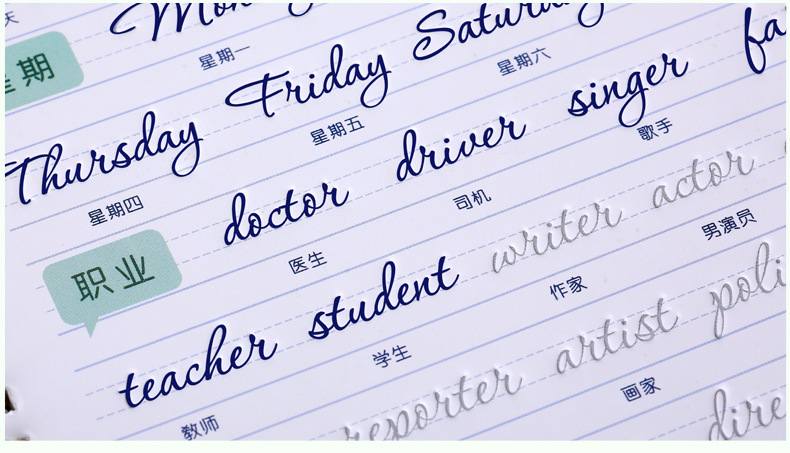 天
星期
星期一
Friday
星期五
星期六
Thursday
星期四
doctor driver singer
医生 司机 歌手
职业
teacher student writer actor
教师 学生 作家 男演员
reporter artist
画家